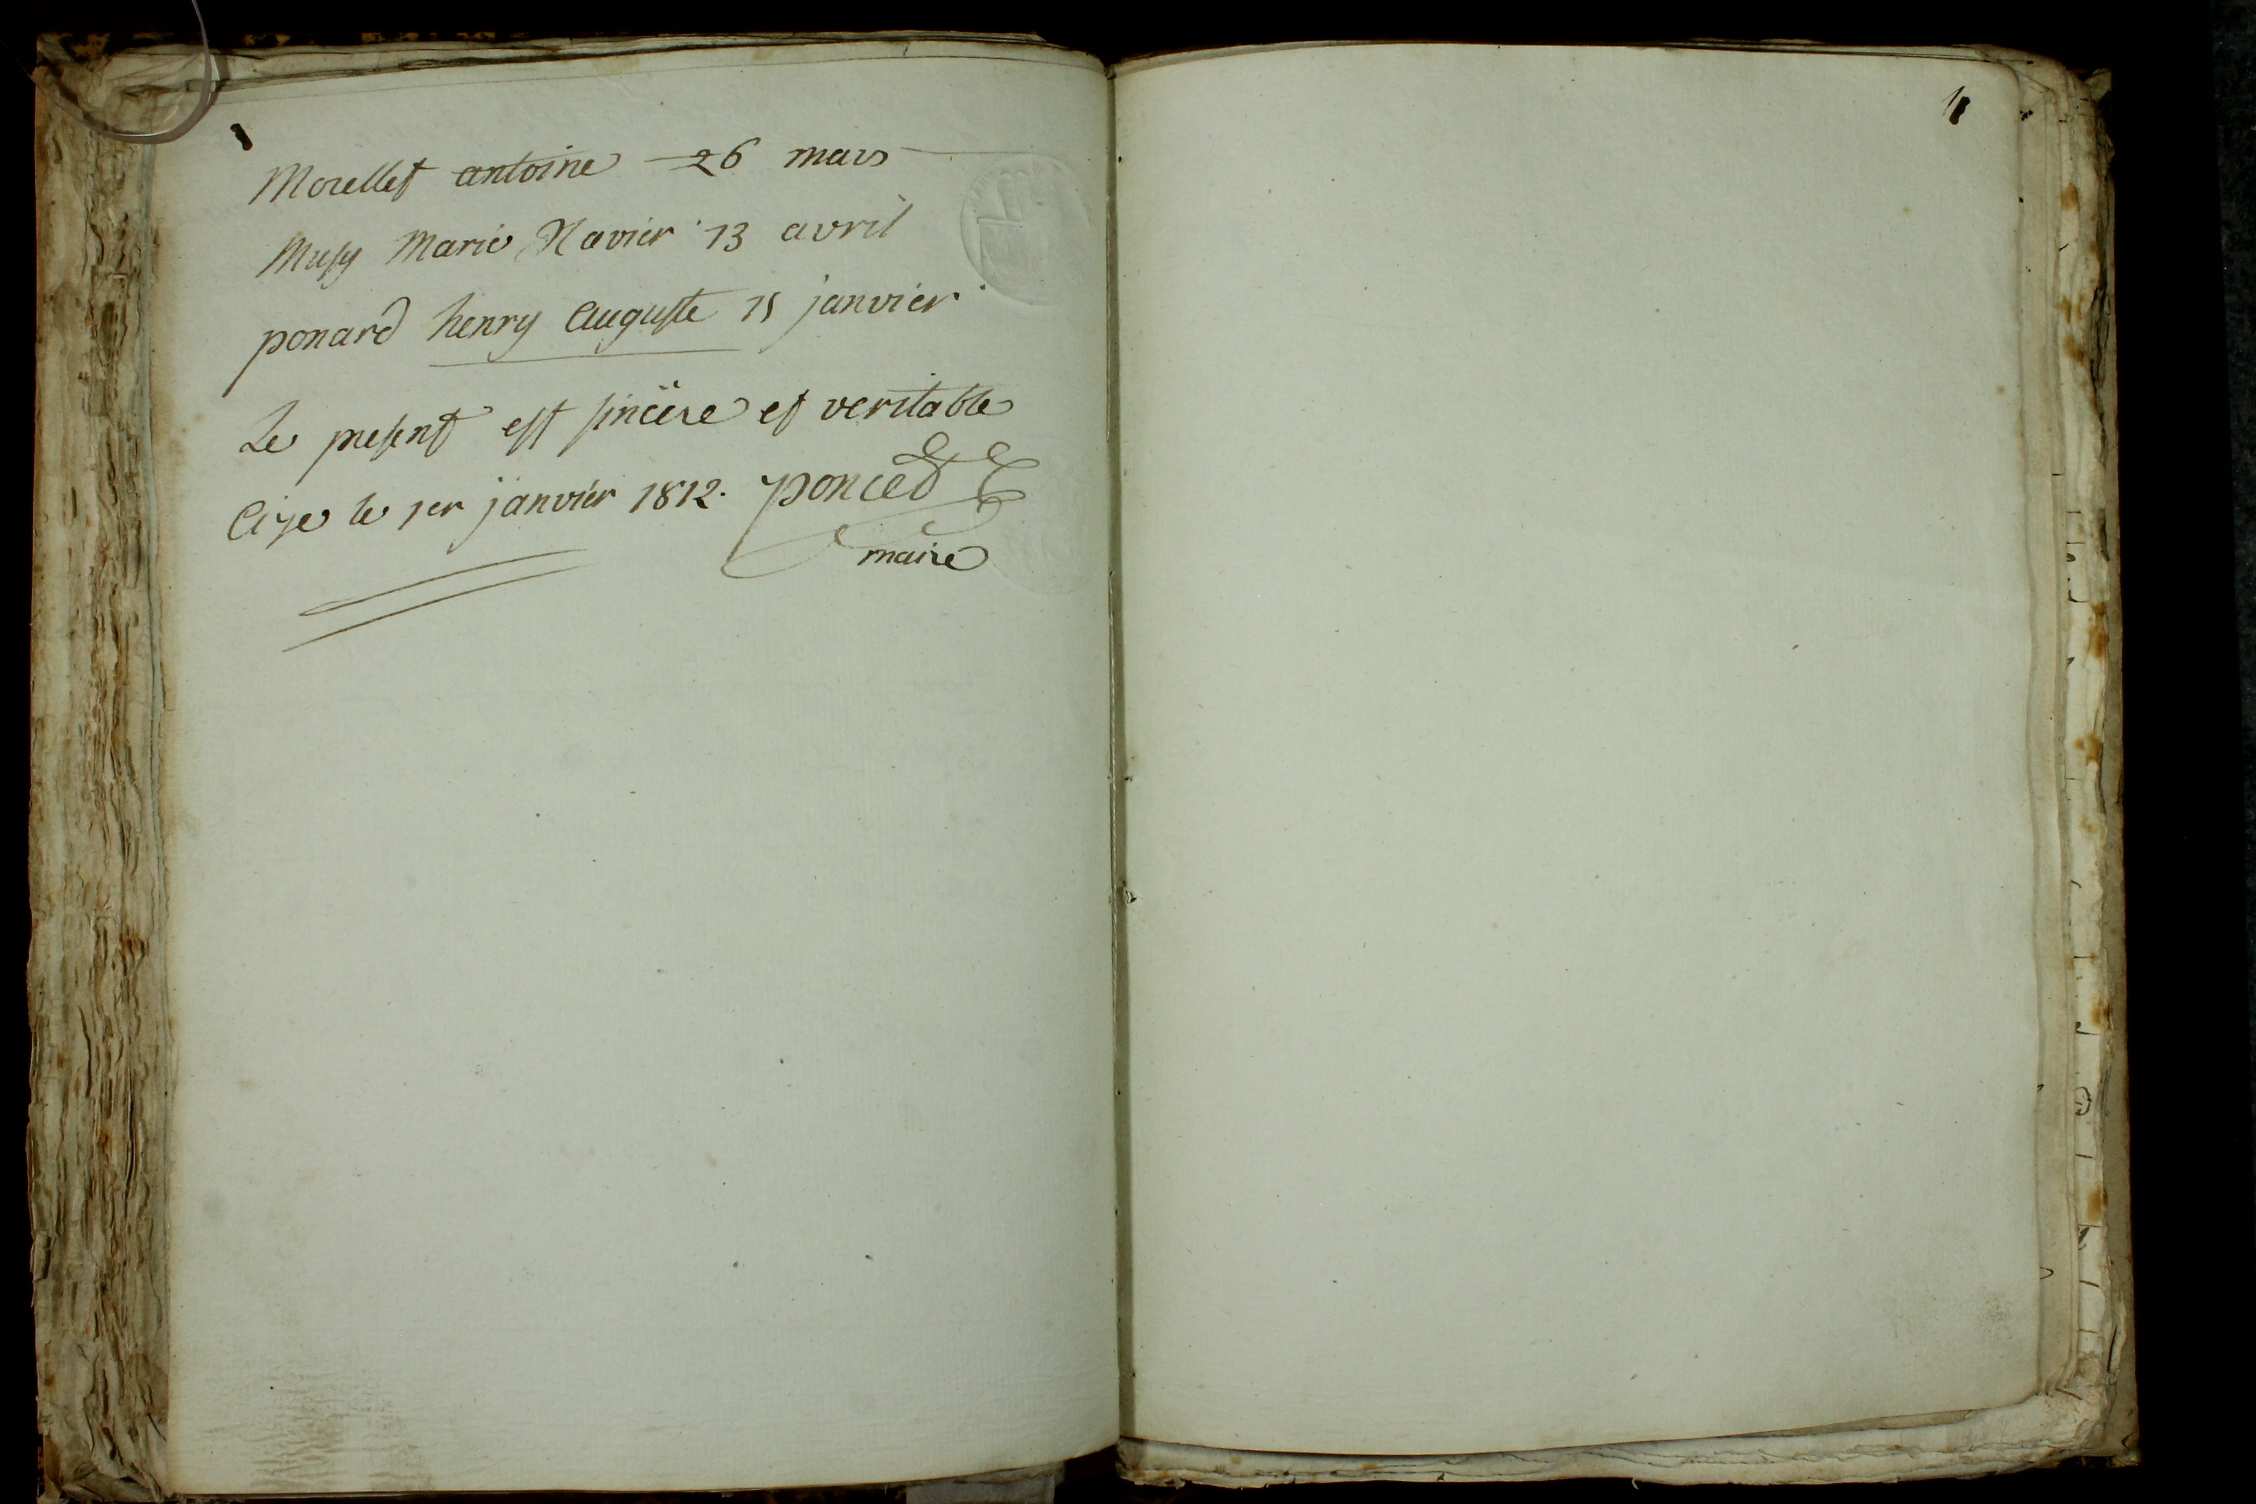 Morellet antoine 26 mars
Musy Marie Xavier 13 avril
ponard henry auguste 15 janvier
Le present est sincère et veritable
Cize le 1er janvier 1812. poncet
maire